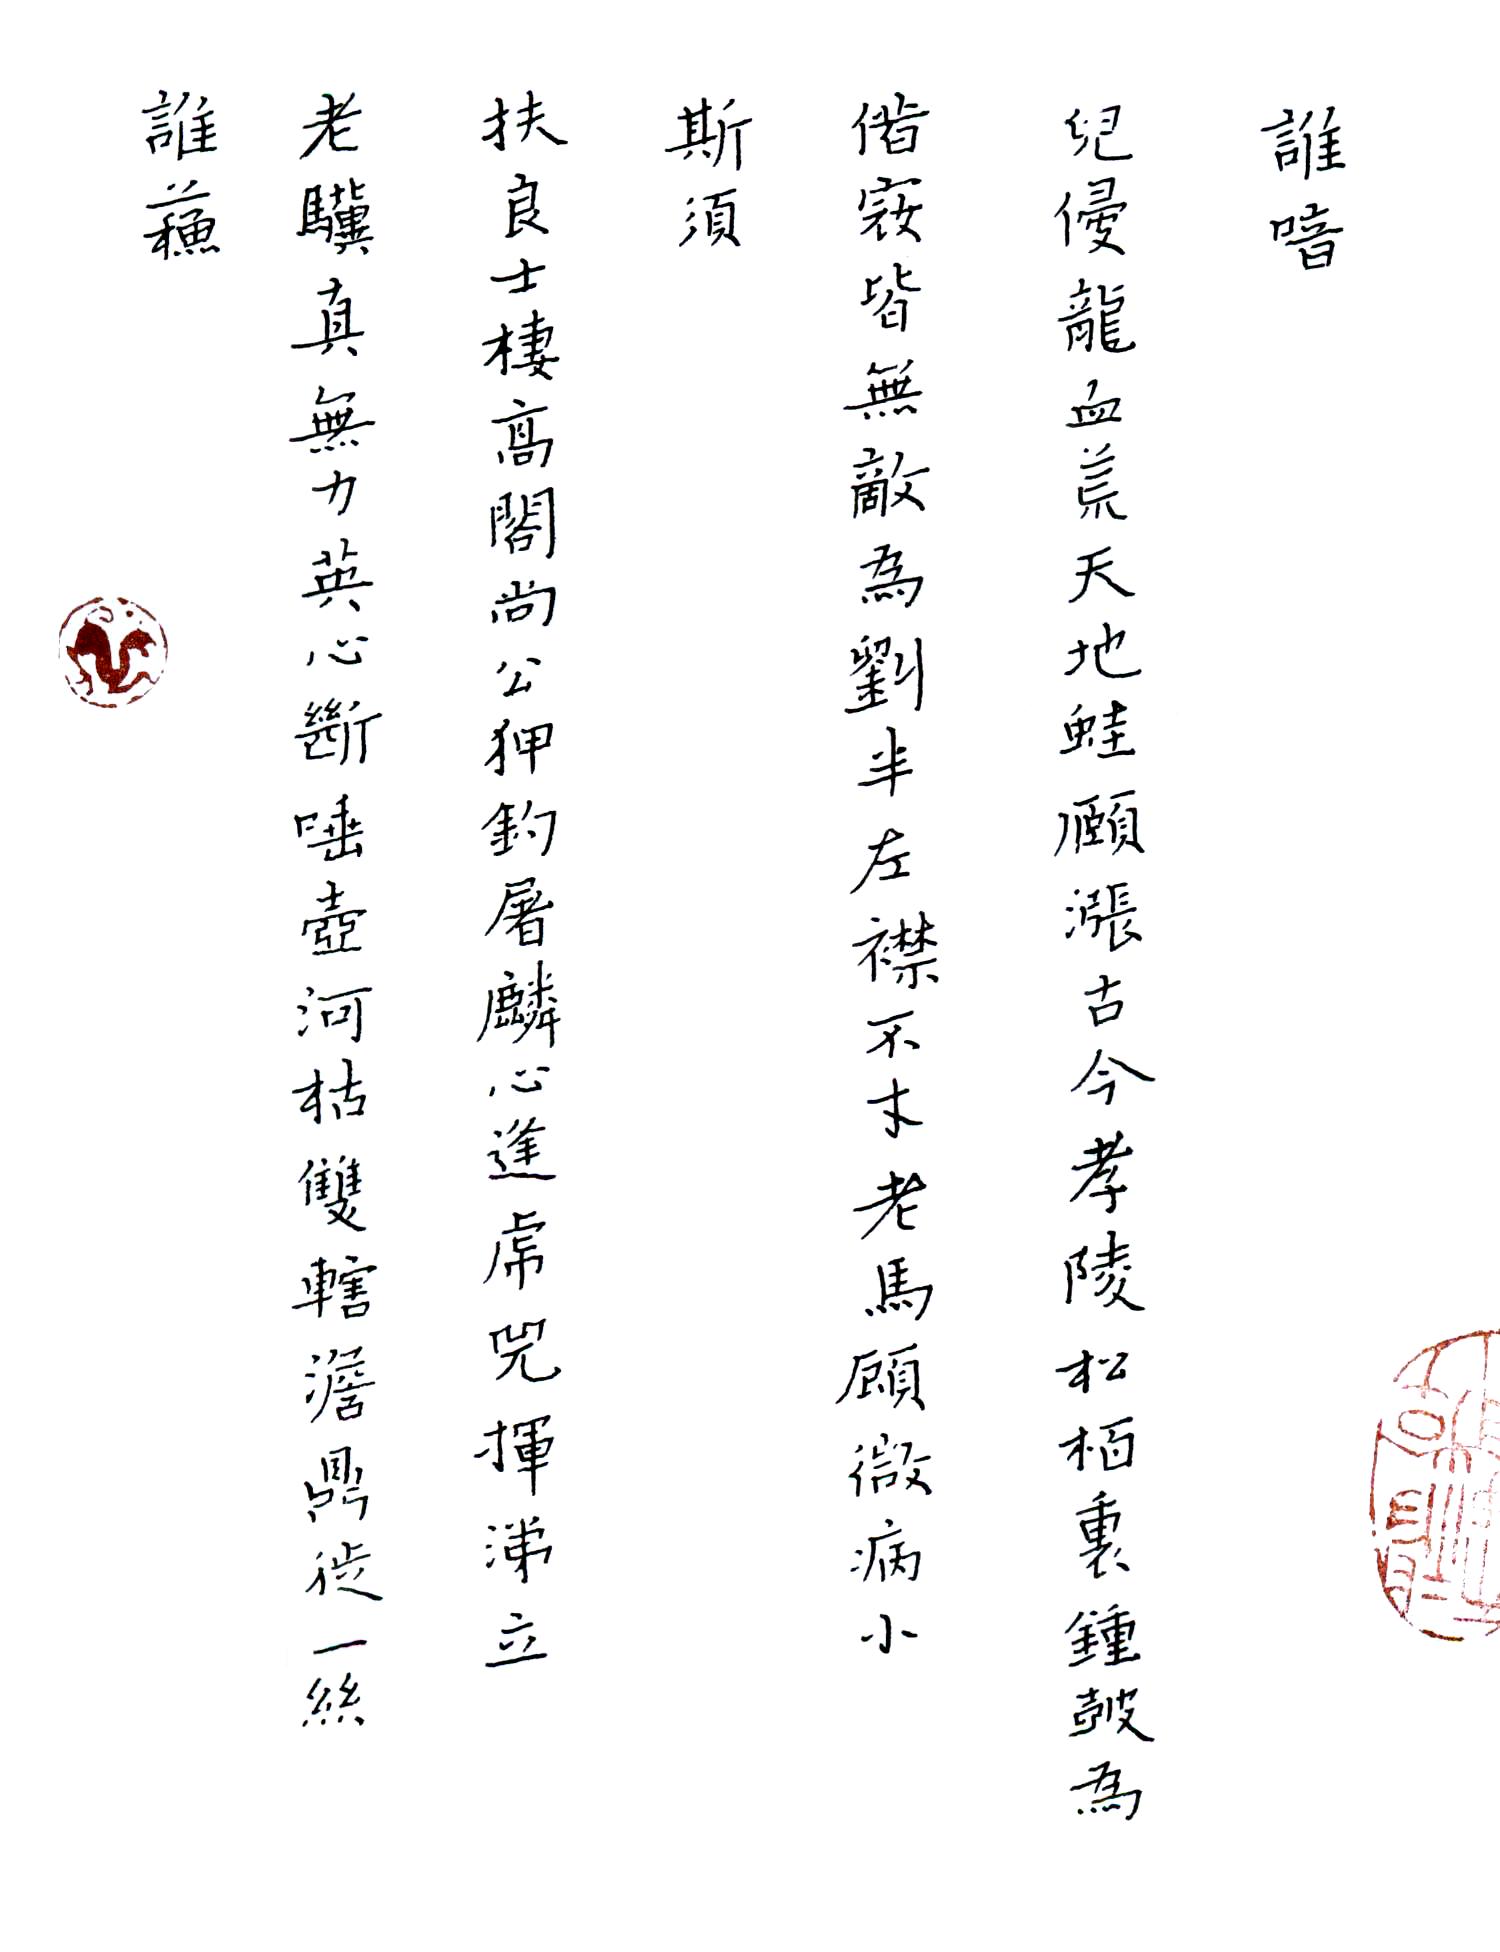 誰蘓
老驥真無力英心斷唾壺河枯雙轄澹鼎徙一絲
扶良士棲高閣尚公狎釣屠麟心逢虎兕揮涕立
斯須
僭竊皆無敵為劉半左襟不才老馬顧微病小
兒侵龍血荒天地蛙頤漲古今孝陵松栢裏鍾皷為
誰喑